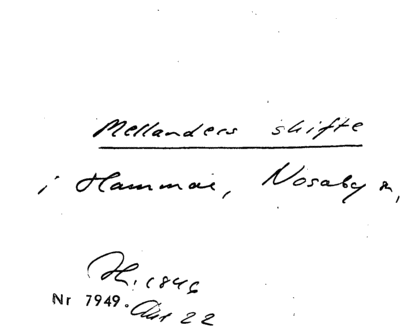 Mellanders skifte
i Hammar, Nosaby sn,
H. 1846
Nr 7949. Akt 22